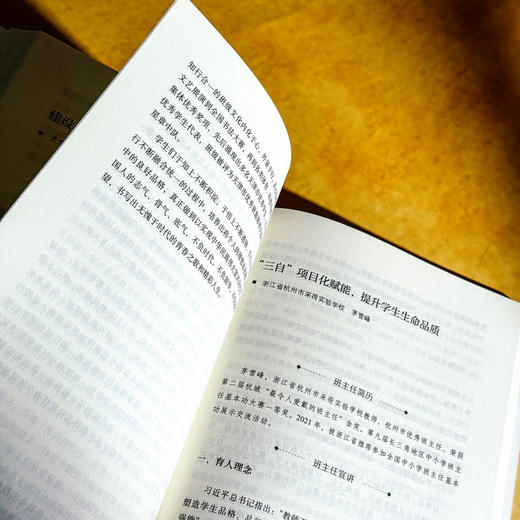 建设
知行合一的班级文化内化于心，外
文艺展演到全国书法大赛，再到
集体优秀奖项，先后涌现出多名天津市优
优秀学生代表，班级被评为天津市优秀
星章中队。
学生们于知上不断积淀，于悟上不断
行不断融合统一的过程中，培养出
中的良好品格，真正做到以实现中华民族伟大复兴
国人的志气、骨气、底气，不负时代，不负韶华，
望，书写出无愧于时代的青春之歌和精彩人生。
“三自”项目化赋能，提升学生生命品质
■ 浙江省杭州市采荷实验学校 茅雪峰
班主任简历
茅雪峰，浙江省杭州市采荷实验学校教师，杭州市优秀班主任。荣获
第二届杭城“最令人爱戴的班主任”金奖，第九届长三角地区中小学班主
任基本功大赛一等奖。2021年，被浙江省推荐参加全国中小学班主任基本
功展示交流活动。
班主任宣讲
一、育人理念
习近平总书记指出：“教师
塑造学生品格、品